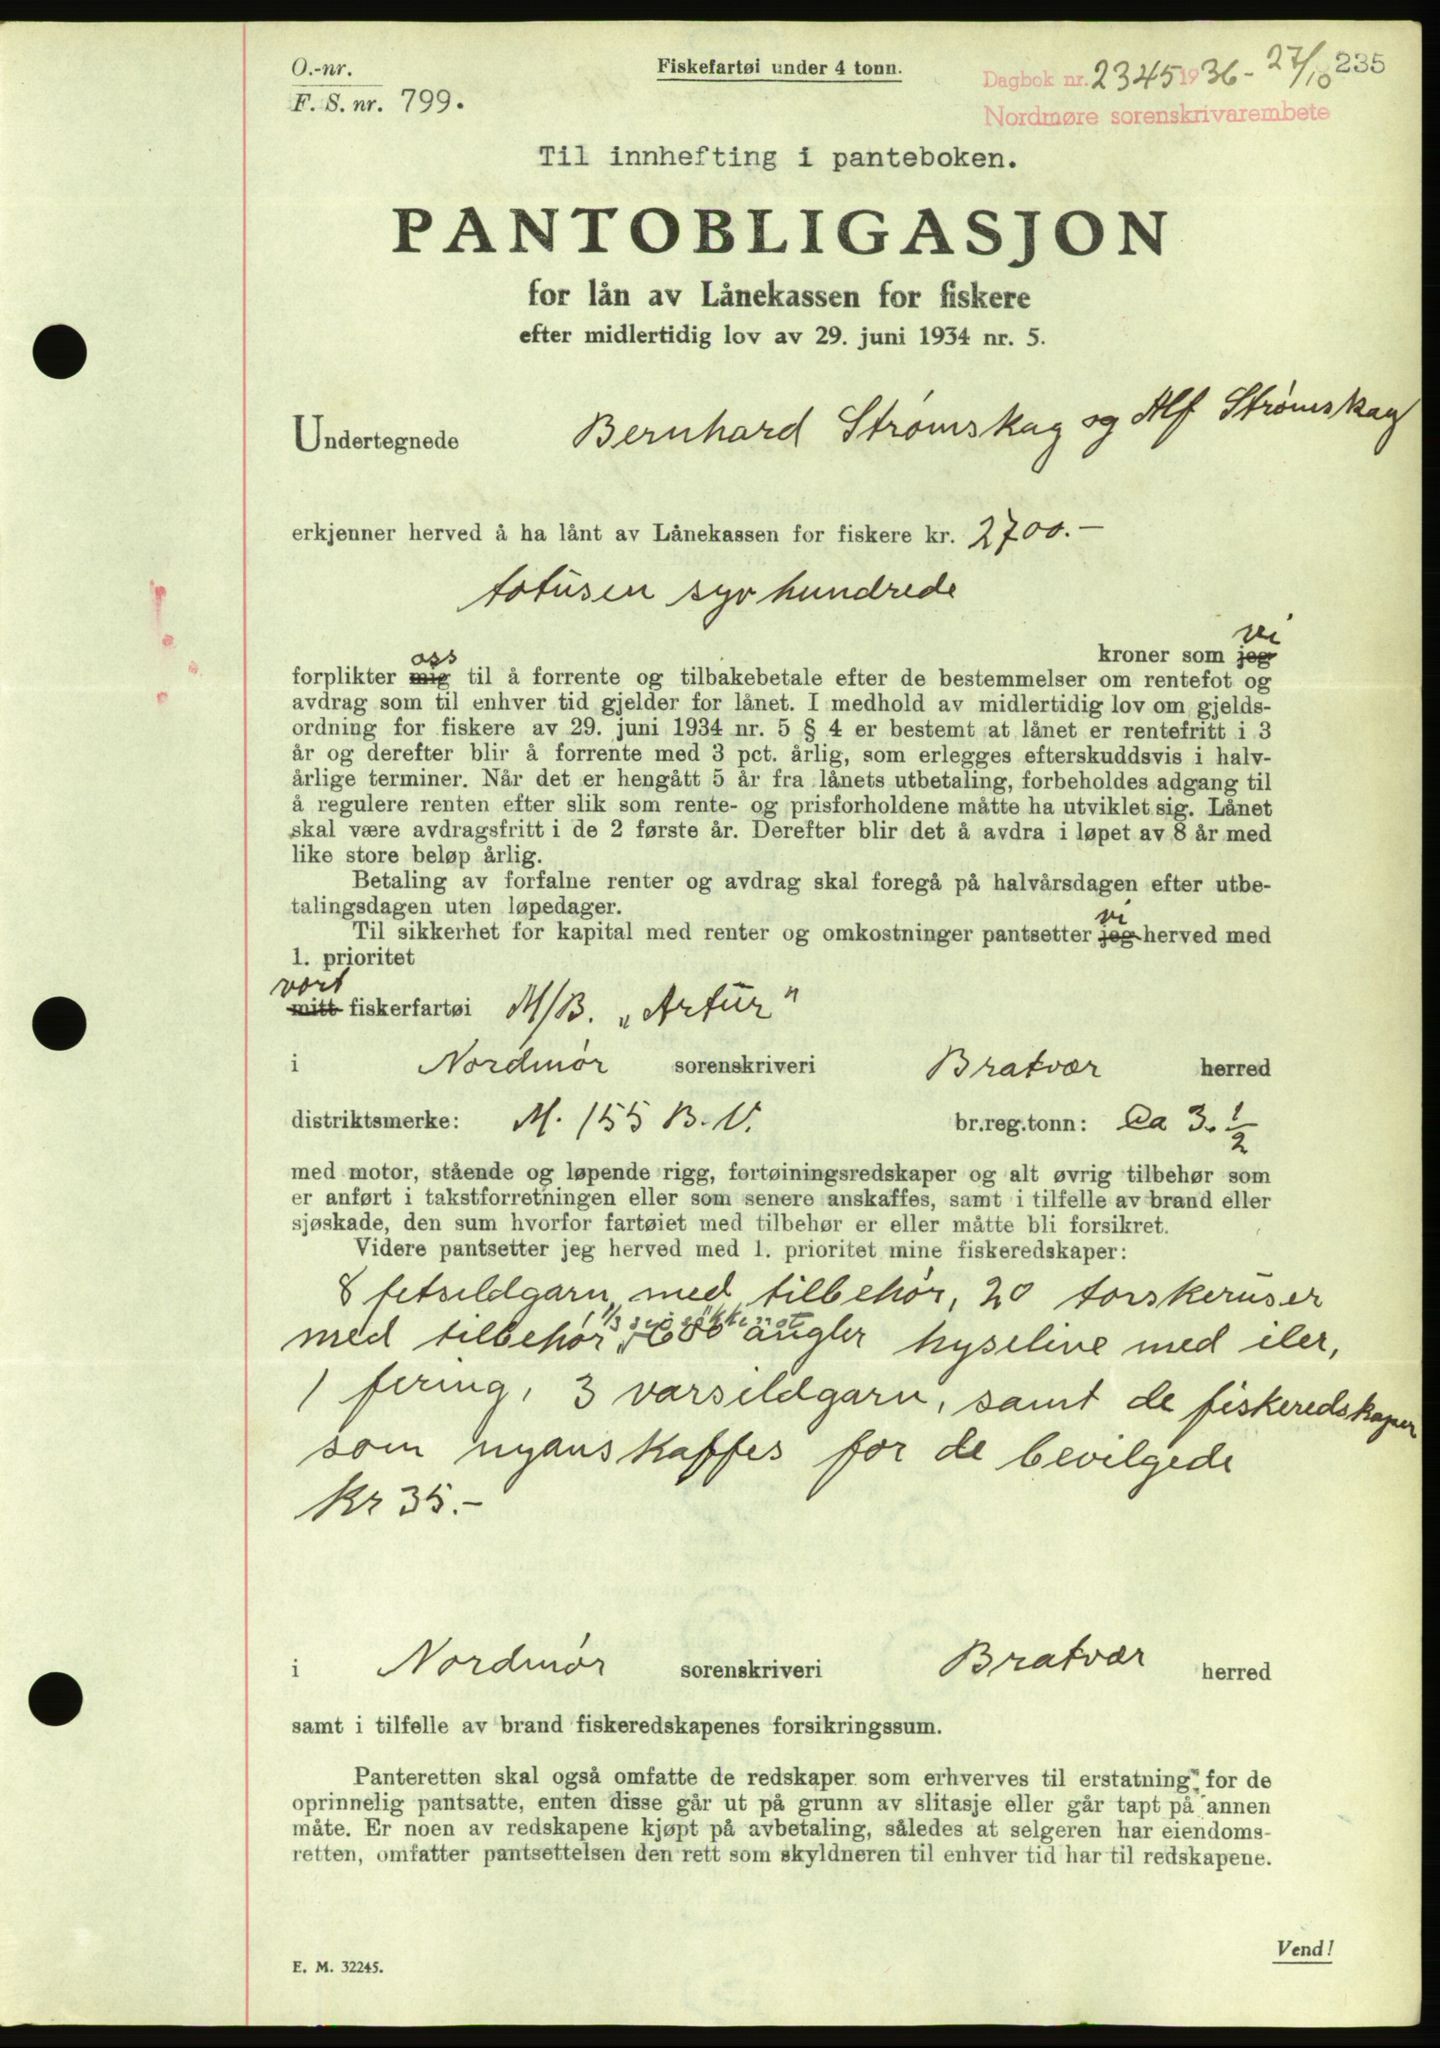 O.-nr.
F. S. nr. 799.
Fiskefartøi under 4 tonn.
Dagbok nr. 2345 1936 - 27/10 235
Nordmøre sorenskrivarembete
Til innhefting i panteboken.
PANTOBLIGASJON
for lån av Lånekassen for fiskere
efter midlertidig lov av 29. juni 1934 nr. 5.
Undertegnede Bernhard Strømskag og Alf Strømskag
erkjenner herved å ha lånt av Lånekassen for fiskere kr. 2700.-
totusen syv hundrede
vi
kroner som jeg
oss
forplikter mig til å forrente og tilbakebetale efter de bestemmelser om rentefot og
avdrag som til enhver tid gjelder for lånet. I medhold av midlertidig lov om gjelds-
ordning for fiskere av 29. juni 1934 nr. 5 § 4 er bestemt at lånet er rentefritt i 3
år og derefter blir å forrente med 3 pct. årlig, som erlegges efterskuddsvis i halv-
årlige terminer. Når det er hengått 5 år fra lånets utbetaling, forbeholdes adgang til
å regulere renten efter slik som rente- og prisforholdene måtte ha utviklet sig. Lånet
skal være avdragsfritt i de 2 første år. Derefter blir det å avdra i løpet av 8 år med
like store beløp årlig.
Betaling av forfalne renter og avdrag skal foregå på halvårsdagen efter utbe-
talingsdagen uten løpedager.
vi
Til sikkerhet for kapital med renter og omkostninger pantsetter jeg herved med
1. prioritet
vort
mitt fiskerfartøi M/B. „Artur"
i Nordmør sorenskriveri Bratvær herred
distriktsmerke: M. 155 B.V. br.reg.tonn: Ca 3. 1/2
med motor, stående og løpende rigg, fortøiningsredskaper og alt øvrig tilbehør som
er anført i takstforretningen eller som senere anskaffes, samt i tilfelle av brand eller
sjøskade, den sum hvorfor fartøiet med tilbehør er eller måtte bli forsikret.
Videre pantsetter jeg herved med 1. prioritet mine fiskeredskaper:
8 fetsildgarn med tilbehør, 20 torskeruser
1/3 sei
med tilbehør, 600 angler hyseline med iler,
1 fering, 3 vårsildgarn, samt de fiskeredskaper
som nyanskaffes for de bevilgede
kr 35.-
i Nordmør sorenskriveri Bratvær herred
samt i tilfelle av brand fiskeredskapenes forsikringssum.
Panteretten skal også omfatte de redskaper som erhverves til erstatning for de
oprinnelig pantsatte, enten disse går ut på grunn av slitasje eller går tapt på annen
måte. Er noen av redskapene kjøpt på avbetaling, således at selgeren har eiendoms-
retten, omfatter pantsettelsen den rett som skyldneren til enhver tid har til redskapene.
Vend!
E. M. 32245.